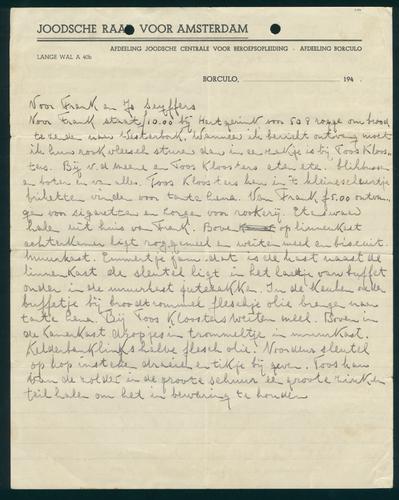 JOODSCHE RAAD VOOR AMSTERDAM
AFDEELING JOODSCHE CENTRALE VOOR BEROEPSOPLEIDING - AFDEELING BORCULO
LANGE WAL A 40b
BORCULO, 194
Voor Frank en Jo Seyffers
Voor Frank staat f10.00 bij Hartgerink voor 50 p rogge om brood
te zenden naar Westerbork, Wanneer ik bericht ontvang moet
ik hun ook vleesch sturen dan in een zakje is bij Toos Kloos-
ters. Bij v.d. meene en Toos Kloosters eten ete. blikken
en boter en van alles. Toos Kloosters kan in 't kleine schuurtje
briketten vinden voor tante Lena. Van Frank f5.00 ontvan-
gen voor sigaretten en zorgen voor rookerij. Etenswaren
halen uit huis van Frank. Boven op linnenkast
achterkamer ligt roggemeel en weitenmeel en biscuit.
muurkast. Emmertje jam. dat is de kast naast de
linnenkast de sleutel ligt in het laadje van buffet
onder in de muurkast petezakken. In de keuken onder
buffetje bij broodtrommel fleschje olie brengen naar
tante Lena. Bij Toos Kloosters weiten meel. Boven in
de kamerkast dropjes in trommeltje in muurkast.
Kelderbank links halve flesch olie. Noordens sleutel
op kop insteken draaien en tikje bij geven. Toos kan
van de zolder in de groote schuur een groote zinken
teil halen om het in bewaring te houden